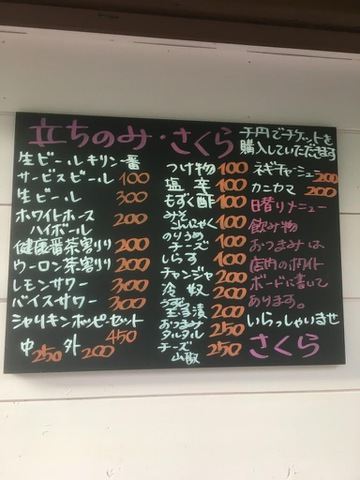 立ちのみ・さくら
生ビールキリン一番
サービスビール 100
生ビール 300
ホワイトホース
ハイボール 200
健康番茶割り 200
ウーロン茶割り 200
レモンサワー 300
バイスサワー 300
シャリキンホッピーセット
450
中 250 外 200
つけ物 100
塩辛 100
もずく酢 100
みそ
こんにゃく 100
のりうめ
チーズ 100
しらす 100
チャンジャ 200
冷奴 200
うずら
玉子漬 200
おつまみ
タルタル 250
チーズ
山椒 250
千円でチケットを
購入していただきます
ネギチャーシュー 200
カニカマ 200
日替りメニュー
飲み物
おつまみは
店内のホワイト
ボードに書いて
あります。
いらっしゃいませ
さくら